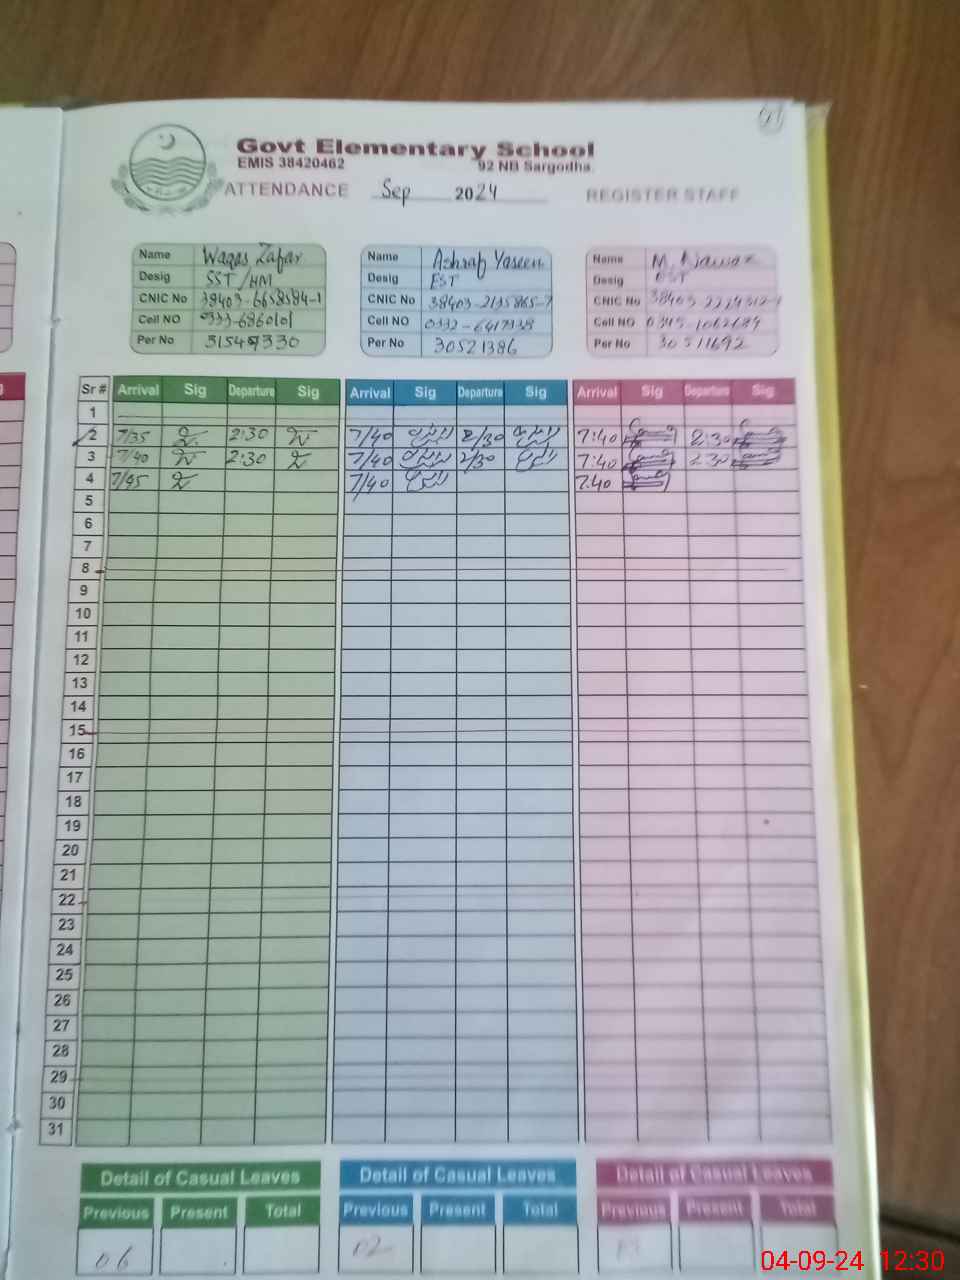 Govt Elementary School
EMIS 38420462 92 NB Sargodha.
ATTENDANCE Sep 2024 REGISTER STAFF
Name Waqas Zafar Name Ashraf Yaseen Name M. Nawaz
Desig SST/HM Desig EST Desig EST
CNIC No 38403-6658584-1 CNIC No 38403-2135865-7 CNIC No
Cell NO 0333-6860101 Cell NO 0332-6417338 Cell NO
Per No Per No 30521386 Per No 30511692
Sr # Arrival Sig Departure Sig Arrival Sig Departure Sig Arrival Sig Departure Sig
1
2 7/35 2:30 7/40 2/30 7:40 2:30
3 7/40 2:30 7/40 2/30 7:40 2:30
4 7/45 7/40 7:40
5
6
7
8
9
10
11
12
13
14
15
16
17
18
19
20
21
22
23
24
25
26
27
28
29
30
31
Detail of Casual Leaves Detail of Casual Leaves Detail of Casual Leaves
Previous Present Total Previous Present Total Previous Present Total
06 02
04-09-24 12:30